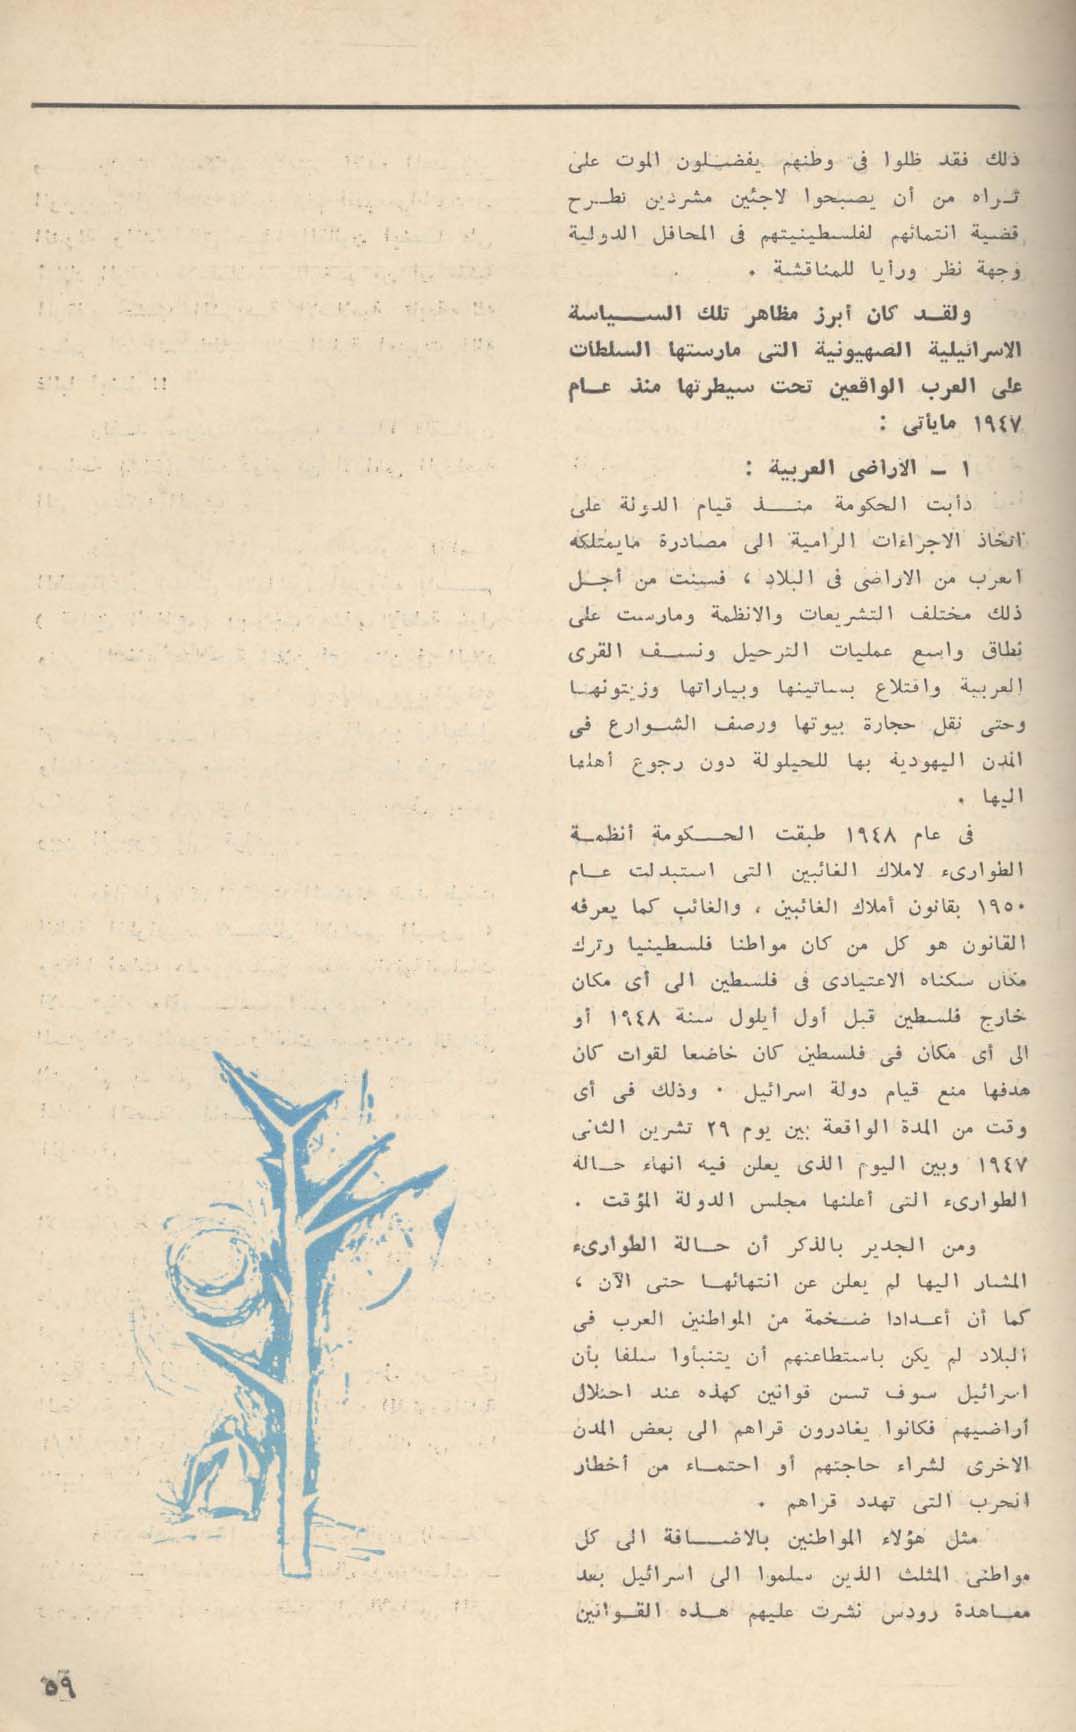 ذلك فقد ظلوا فى وطنهم يفضلون الموت على
ثراه من أن يصبحوا لاجئين مشردين تطرح
قضية انتمائهم لفلسطينيتهم فى المحافل الدولية
وجهة نظر ورأيا للمناقشة .
ولقد كان أبرز مظاهر تلك السياسة
الاسرائيلية الصهيونية التى مارستها السلطات
على العرب الواقعين تحت سيطرتها منذ عام
١٩٤٧ مايأتى :
١ - الأراضى العربية :
دأبت الحكومة منذ قيام الدولة على
اتخاذ الاجراءات الرامية الى مصادرة مايمتلكه
العرب من الاراضى فى البلاد ، فسنت من أجل
ذلك مختلف التشريعات والانظمة ومارست على
نطاق واسع عمليات الترحيل ونسف القرى
العربية واقتلاع بساتينها وبياراتها وزيتونها
وحتى نقل حجارة بيوتها ورصف الشوارع فى
المدن اليهودية بها للحيلولة دون رجوع أهلها
اليها .
فى عام ١٩٤٨ طبقت الحكومة أنظمة
الطوارىء لاملاك الغائبين التى استبدلت عام
١٩٥٠ بقانون أملاك الغائبين ، والغائب كما يعرفه
القانون هو كل من كان مواطنا فلسطينيا وترك
مكان سكناه الاعتيادى فى فلسطين الى أى مكان
خارج فلسطين قبل أول أيلول سنة ١٩٤٨ أو
الى أى مكان فى فلسطين كان خاضعا لقوات كان
هدفها منع قيام دولة اسرائيل . وذلك فى أى
وقت من المدة الواقعة بين يوم ٢٩ تشرين الثانى
١٩٤٧ وبين اليوم الذى يعلن فيه انهاء حالة
الطوارىء التى أعلنها مجلس الدولة المؤقت .
ومن الجدير بالذكر أن حالة الطوارىء
المشار اليها لم يعلن عن انتهائها حتى الآن ،
كما أن أعدادا ضخمة من المواطنين العرب فى
البلاد لم يكن باستطاعتهم أن يتنبأوا سلفا بأن
اسرائيل سوف تسن قوانين كهذه عند احتلال
أراضيهم فكانوا يغادرون قراهم الى بعض المدن
الاخرى لشراء حاجتهم أو احتماء من أخطار
الحرب التى تهدد قراهم .
مثل هؤلاء المواطنين بالاضافة الى كل
مواطنى المثلث الذين سلموا الى اسرائيل بعد
معاهدة رودس نشرت عليهم هذه القوانين
٥٩